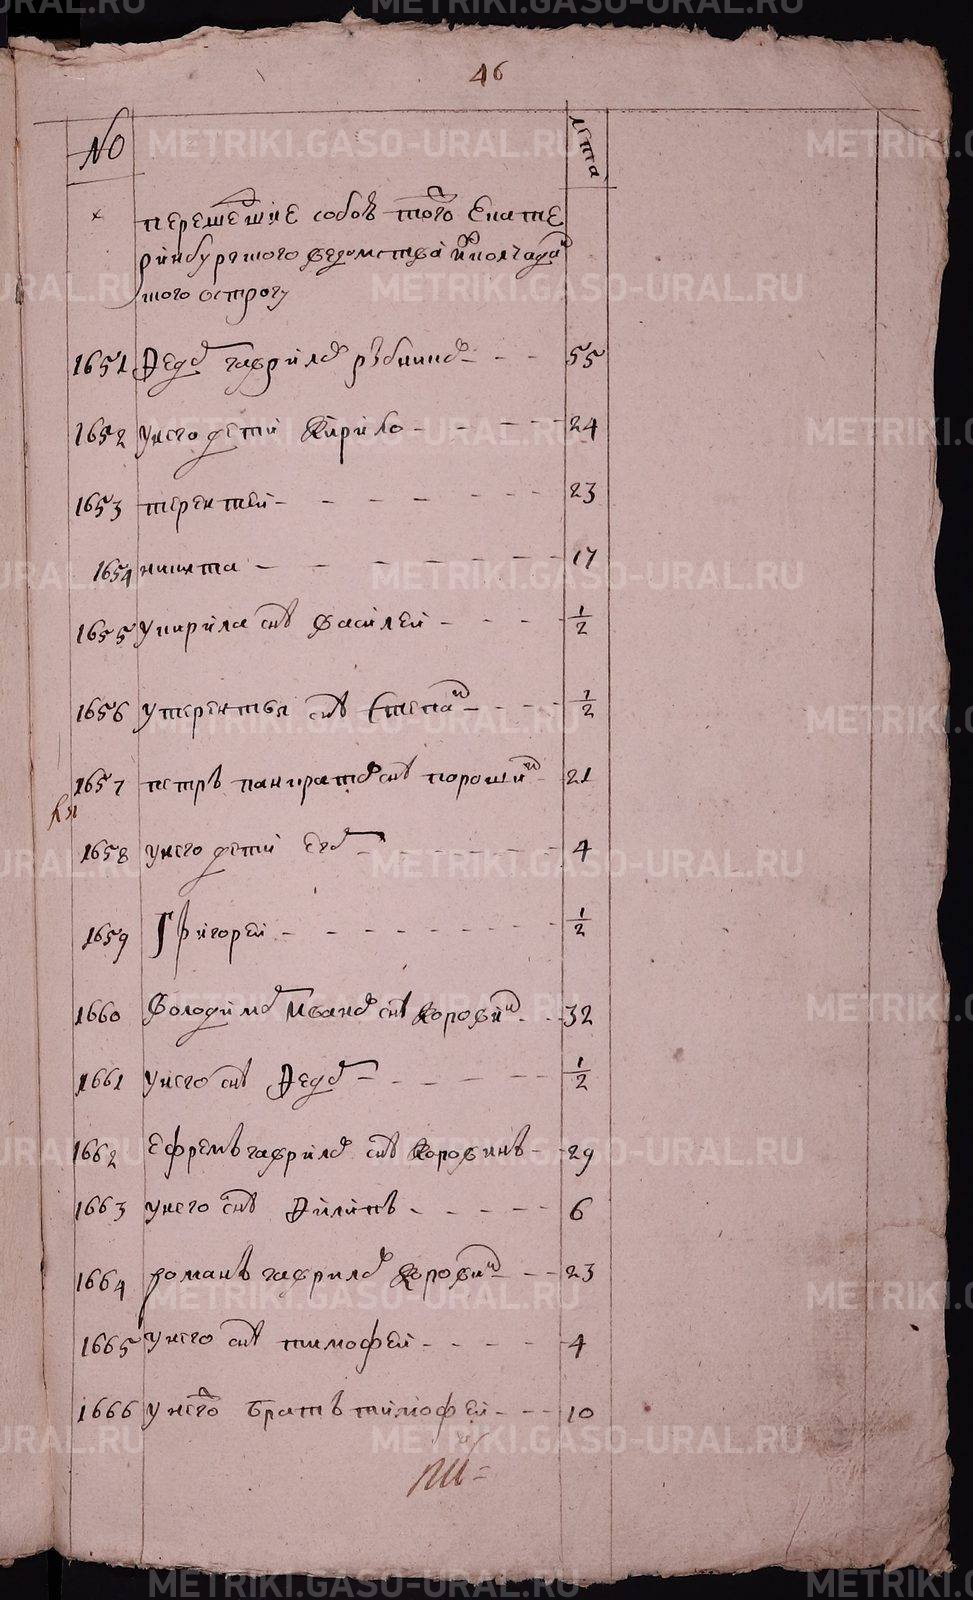 46
№ лѣта
перешедшие собою того Екате
ринбурского ведомства
того острогу
1651 Федор Гаврилов 55
1652 у него дети Кирило 24
1653 терентей 23
1654 никита 17
1655 у кирила снъ василей 1/2
1656 у терентья снъ степан 1/2
1657 петръ панкратов снъ порошин 21
1658 у него дети 4
1659 Григорей 1/2
1660 володимер Иванов снъ коровин 32
1661 у него снъ Федор 1/2
1662 ефремъ гаврилов снъ коровинъ 29
1663 у него снъ Филипъ 6
1664 романъ гаврилов коровин 23
1665 у него снъ тимофей 4
1666 у него братъ тимофей 10
METRIKI.GASO-URAL.RU